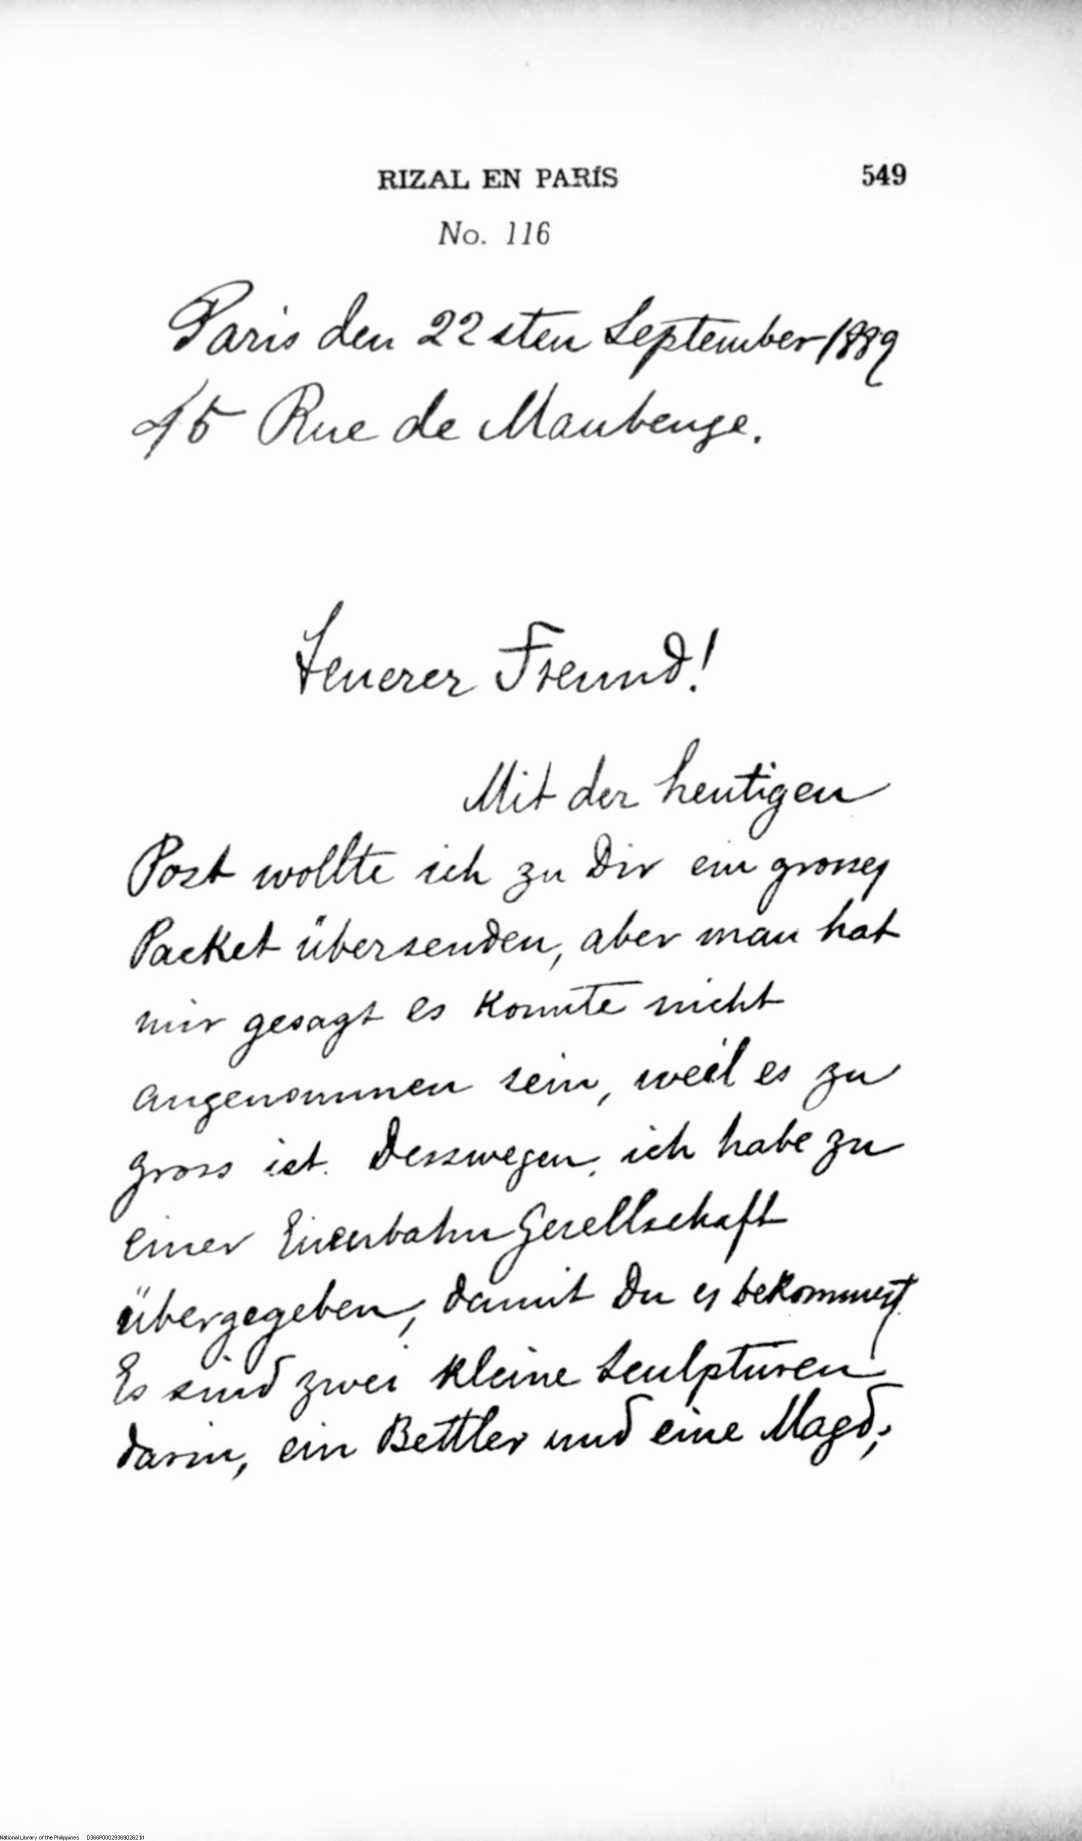 RIZAL EN PARÍS 549
No. 116
Paris den 22sten September 1889
45 Rue de Maubeuge.
Teuerer Freund!
Mit der heutigen
Post wollte ich zu Dir ein grosses
Packet übersenden, aber man hat
mir gesagt es konnte nicht
angenommen sein, weil es zu
gross ist. Desswegen, ich habe zu
einer Eisenbahn Gesellschaft
übergegeben, damit Du es bekommest.
Es sind zwei kleine Sculpturen
darin, ein Bettler und eine Magd;
National Library of the Philippines